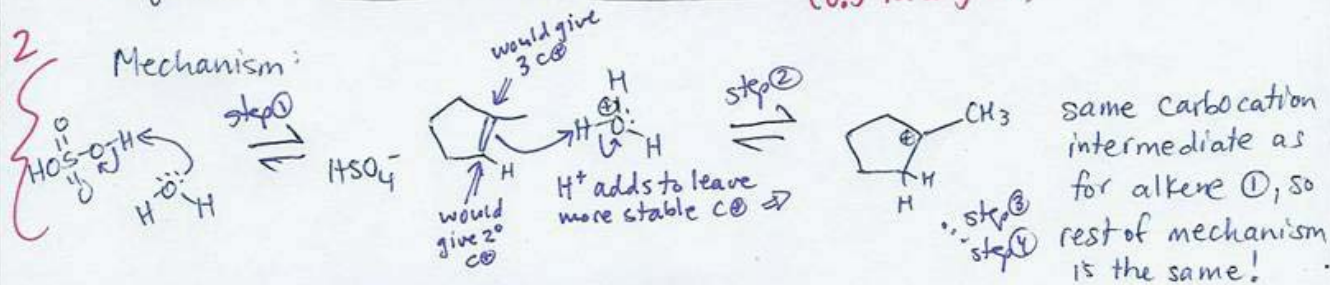 2
Mechanism:
would give
3 C⊕
step①
HOS-O-H
O
O
H O H
HSO4⁻
H
would
give 2°
C⊕
H
H-O:
H
⊕
H⁺ adds to leave
more stable C⊕ ⇒
step②
CH3
⊕
H
H
step③
step④
same carbocation
intermediate as
for alkene ①, so
rest of mechanism
is the same!